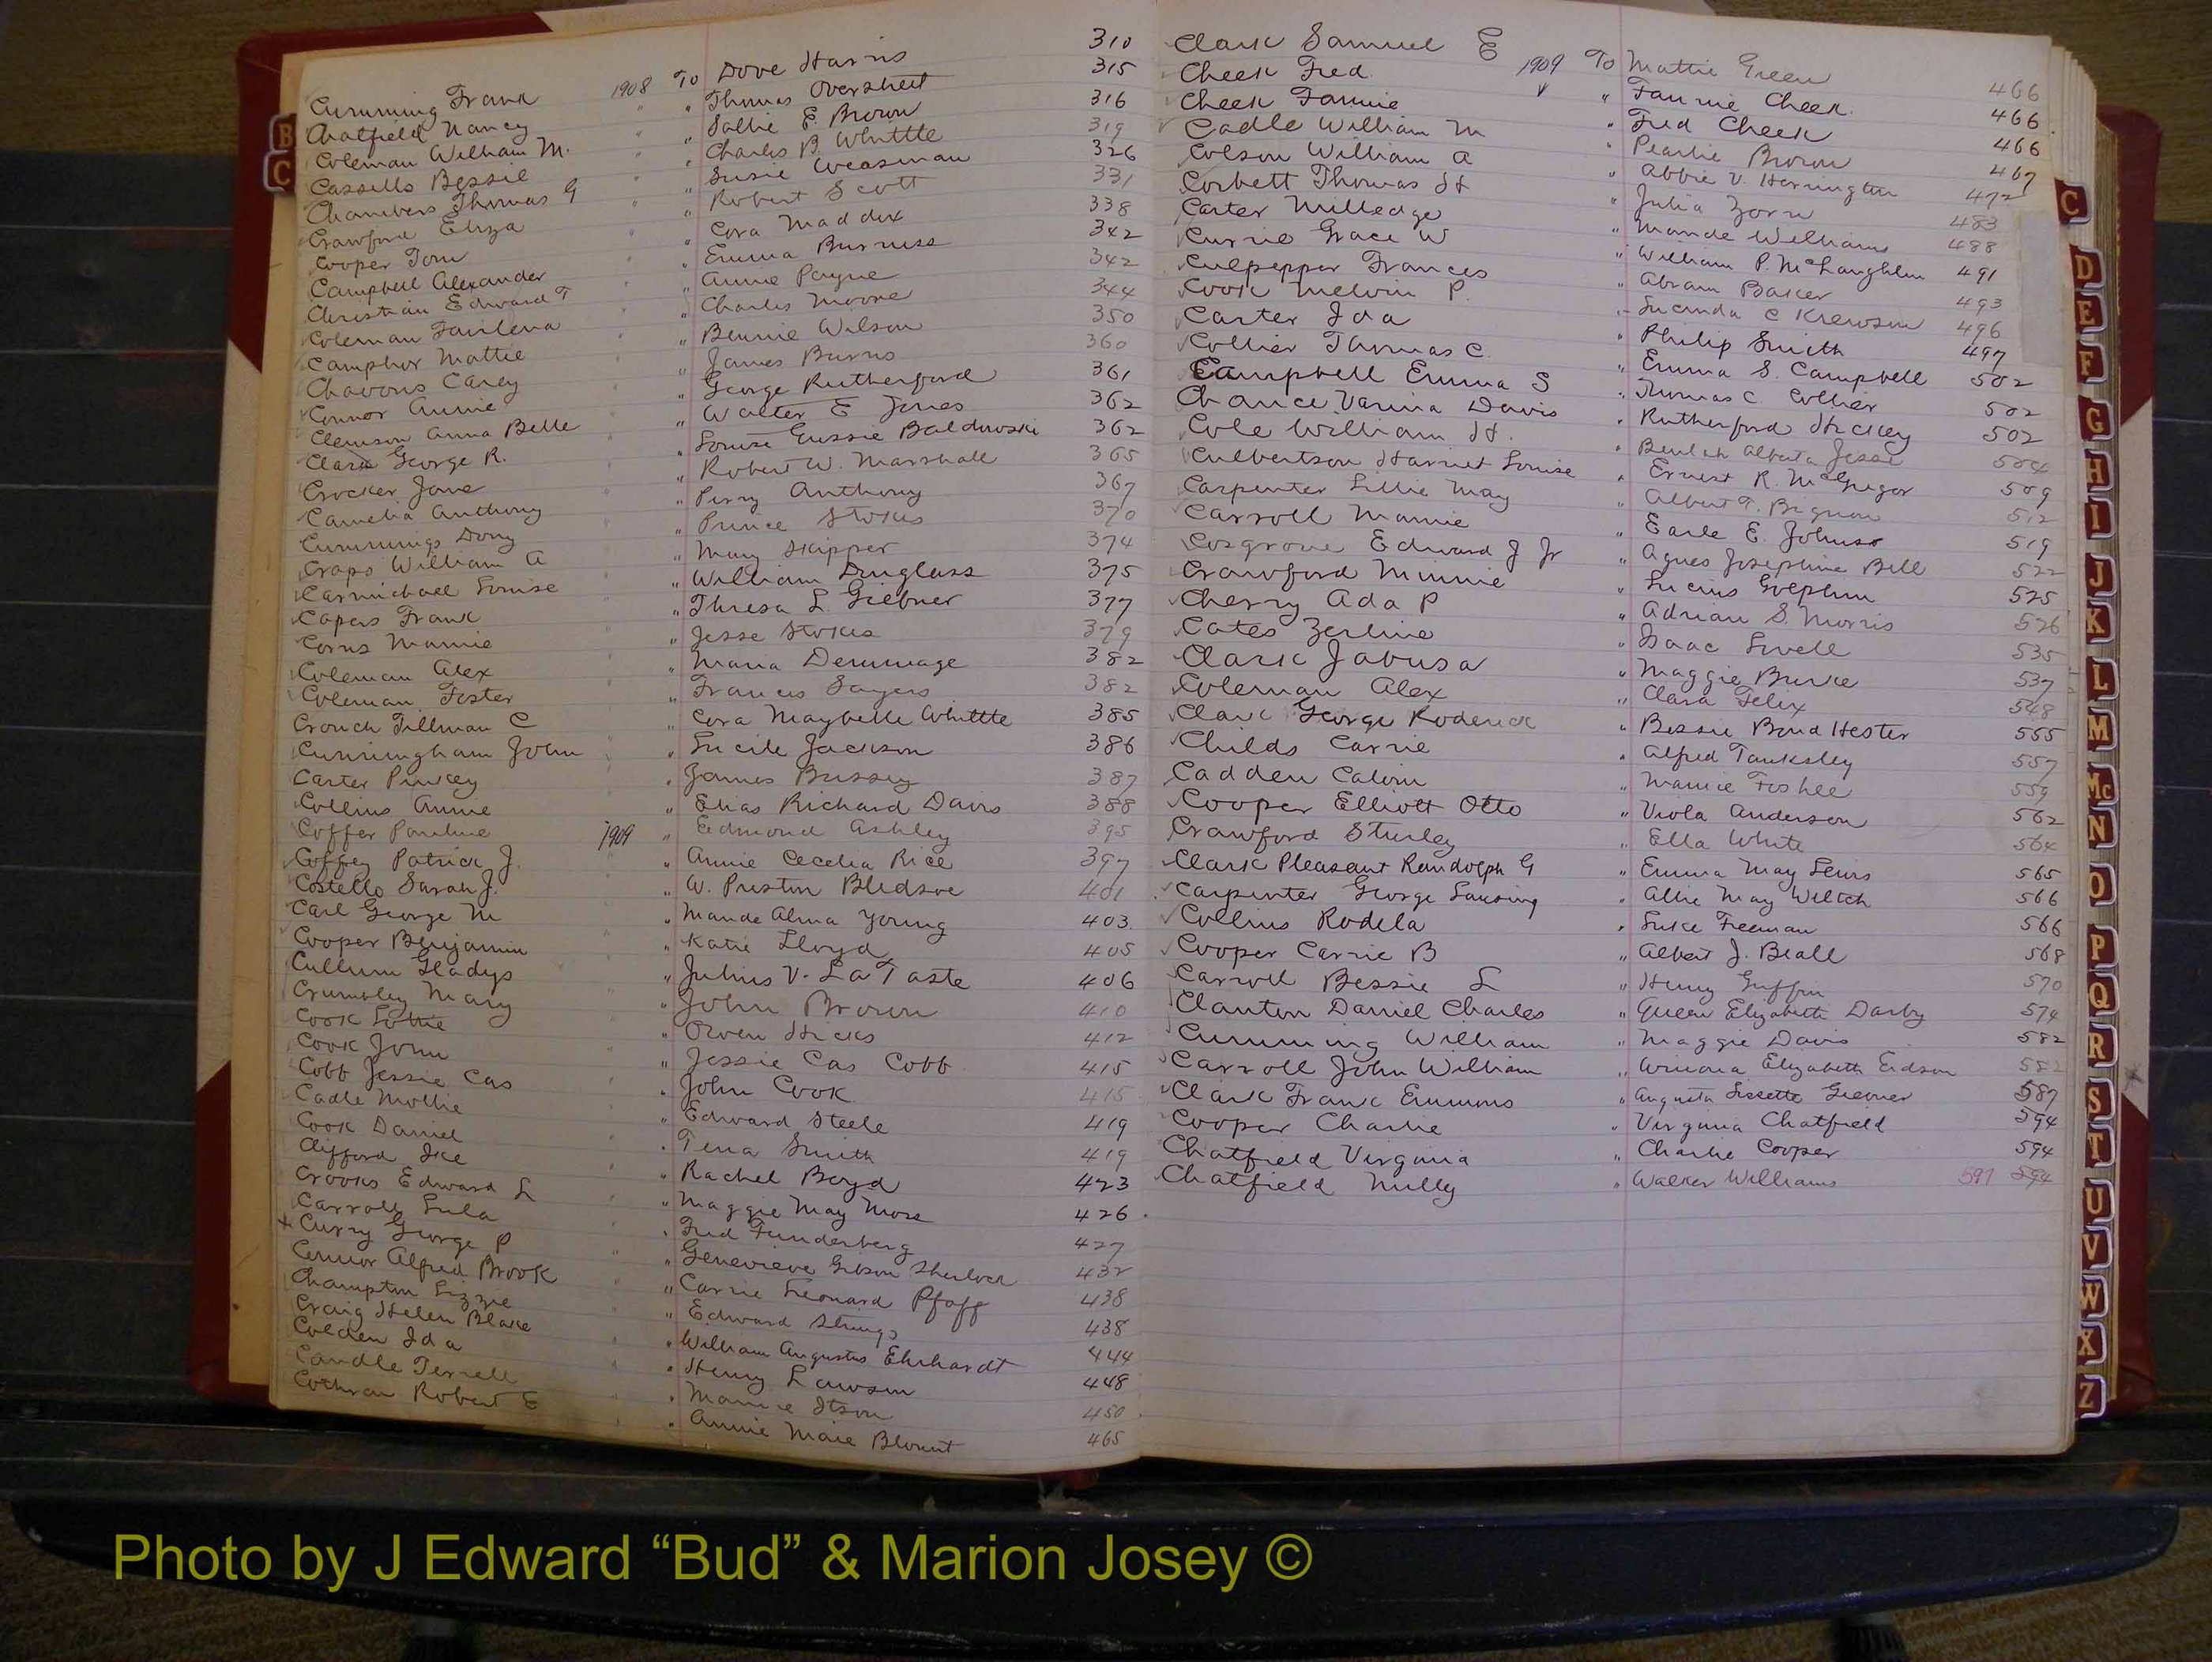 Cumming Frank 1908 To Dove Harris 310
Chatfield Nancy " " Thomas Overstreet 315
Coleman William M. " " Sallie E. Brown 316
Cassells Bessie " " Charles B. Whittle 319
Chambers Thomas G " " Susie Weasman 326
Crawford Eliza " " Robert Scott 331
Cooper Tom " " Cora Maddox 338
Campbell Alexander " " Emma Burness 342
Christian Edward T " " Annie Payne 342
Coleman Faulena " " Charles Moore 344
Camphor Mattie " " Bennie Wilson 350
Chavous Carey " " James Burns 360
Connor Annie " " George Rutherford 361
Clemson Anna Belle " " Walter E Jones 362
Clark George R. " " Louise Gussie Baldowski 362
Crocker Jane " " Robert W. Marshall 365
Camelia Anthony " " Perry Anthony 367
Cummings Dony " " Prince Stokes 370
Craps William A " " Mary Skipper 374
Carmichael Louise " " William Douglass 375
Capers Frank " " Thresa L. Giebner 377
Corns Mamie " " Jesse Stokes 379
Coleman Alex " " Maria Demmage 382
Coleman Foster " " Frances Sayers 382
Crouch Tillman C " " Cora Maybelle Whittle 385
Cunningham John " " Lucile Jackson 386
Carter Pinkey " " James Bussey 387
Collins Annie " " Elias Richard Davis 388
Coffer Pauline 1909 " Edmond Ashley 395
Coffey Patrick J. " " Annie Cecelia Rice 397
Costello Sarah J. " " W. Preston Bledsoe 401
Carl George M " " Maude Alma Young 403
Cooper Benjamin " " Katie Lloyd 405
Cullum Gladys " " Julius V. La Taste 406
Crumbley Mary " " John Brown 410
Cook Lottie " " Owen Hicks 412
Cook John " " Jessie Cas Cobb 415
Cobb Jessie Cas " " John Cook 415
Cadle Mollie " " Edward Steele 419
Cook Daniel " " Tena Smith 419
Clifford Ike " " Rachel Boyd 423
Crooks Edward L " " Maggie May Moss 426
Carroll Lula " " Fred Funderberg 427
+ Curry George P " " Genevieve Gibson Sherlock 432
Connor Alfred Brook " " Carrie Leonard Pfaff 438
Champton Lizzie " " Edward Strings 438
Craig Helen Blake " " William Augustus Ehrhardt 444
Colden Ida " " Henry Lawson 448
Candle Terrell " " Mamie Itson 450
Cothran Robert E " " Annie Maie Blount 465
Clark Samuel E 1909 To Mattie Green 466
Cheek Fred " " Fannie Cheek 466
Cheek Fannie " Fred Cheek 466
Cadle William M " Pearlie Brown 467
Colson William A " Abbie V. Herrington 472
Corbett Thomas H " Julia Zorn 483
Carter Milledge " Maude Williams 488
Currie Grace W " William P. McLaughlin 491
Culpepper Frances " Abram Baker 493
Cook Melvin P. " Lucinda C Krewson 496
Carter Ida " Philip Smith 497
Collier Thomas C. " Emma S. Campbell 502
Campbell Emma S " Thomas C Collier 502
Chance Varina Davis " Rutherford Hickey 502
Cole William H. " Beulah Alberta Jesse 504
Culbertson Harriet Louise " Ernest R. McGregor 509
Carpenter Lillie May " Albert T. Bignon 512
Carroll Mamie " Earle E. Johnson 519
Cosgrove Edward J Jr " Agnes Josephine Bell 522
Crawford Minnie " Lucius Golphin 525
Cherry Ada P " Adrian S. Morris 526
Cates Zerline " Isaac Levell 535
Clark Jabusa " Maggie Burke 537
Coleman Alex " Clara Felix 548
Clark George Roderick " Bessie Bond Hester 555
Childs Carrie " Alfred Tanksley 557
Cadden Calvin " Mamie Foshee 559
Cooper Elliott Otto " Viola Anderson 562
Crawford Sturley " Ella White 564
Clark Pleasant Randolph G " Emma May Lewis 565
Carpenter George Lansing " Allie May Weltch 566
Collins Rodela " Luke Freeman 566
Cooper Carrie B " Albert J. Beall 568
Carroll Bessie L " Henry Griffin 570
Clanton Daniel Charles " Queen Elizabeth Darby 574
Cumming William " Maggie Davis 582
Carroll John William " Winona Elizabeth Eidson 582
Clark Frank Emmons " Augusta Lissette Greiner 587
Cooper Charlie " Virginia Chatfield 594
Chatfield Virginia " Charlie Cooper 594
Chatfield Milly " Walker Williams 597 594
B
C
C
D
E
F
G
H
I
J
K
L
M
Mc
N
O
P
Q
R
S
T
U
V
W
X
Z
Photo by J Edward “Bud” & Marion Josey ©